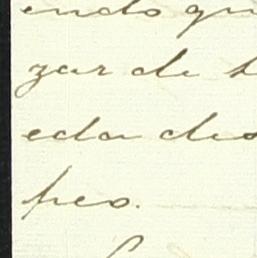 endo qu
zar de
eda des
pes.